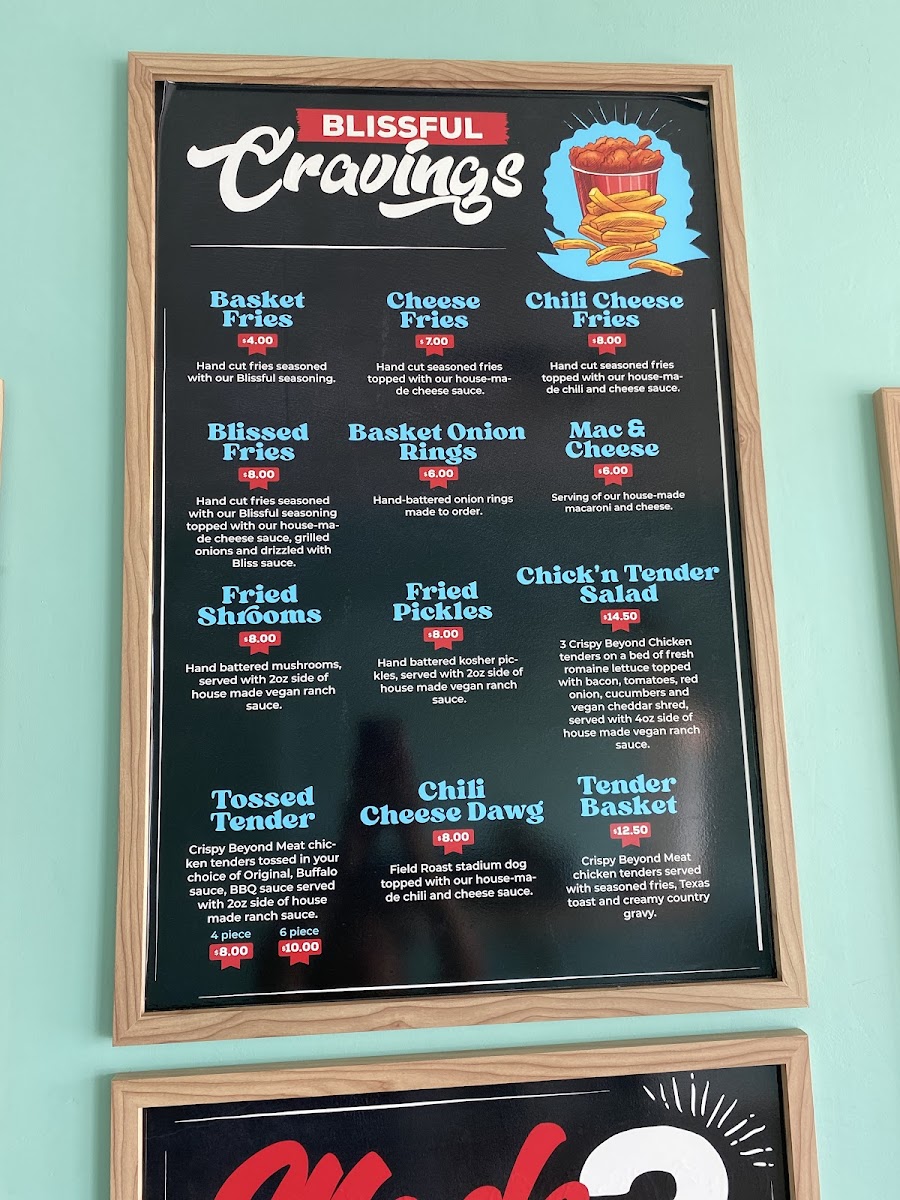 BLISSFUL
Cravings
Basket
Fries
$4.00
Hand cut fries seasoned
with our Blissful seasoning.
Cheese
Fries
$7.00
Hand cut seasoned fries
topped with our house-ma-
de cheese sauce.
Chili Cheese
Fries
$8.00
Hand cut seasoned fries
topped with our house-ma-
de chili and cheese sauce.
Blissed
Fries
$8.00
Hand cut fries seasoned
with our Blissful seasoning
topped with our house-ma-
de cheese sauce, grilled
onions and drizzled with
Bliss sauce.
Basket Onion
Rings
$6.00
Hand-battered onion rings
made to order.
Mac &
Cheese
$6.00
Serving of our house-made
macaroni and cheese.
Fried
Shrooms
$8.00
Hand battered mushrooms,
served with 2oz side of
house made vegan ranch
sauce.
Fried
Pickles
$8.00
Hand battered kosher pic-
kles, served with 2oz side of
house made vegan ranch
sauce.
Chick'n Tender
Salad
$14.50
3 Crispy Beyond Chicken
tenders on a bed of fresh
romaine lettuce topped
with bacon, tomatoes, red
onion, cucumbers and
vegan cheddar shred,
served with 4oz side of
house made vegan ranch
sauce.
Tossed
Tender
Crispy Beyond Meat chic-
ken tenders tossed in your
choice of Original, Buffalo
sauce, BBQ sauce served
with 2oz side of house
made ranch sauce.
4 piece 6 piece
$8.00 $10.00
Chili
Cheese Dawg
$8.00
Field Roast stadium dog
topped with our house-ma-
de chili and cheese sauce.
Tender
Basket
$12.50
Crispy Beyond Meat
chicken tenders served
with seasoned fries, Texas
toast and creamy country
gravy.